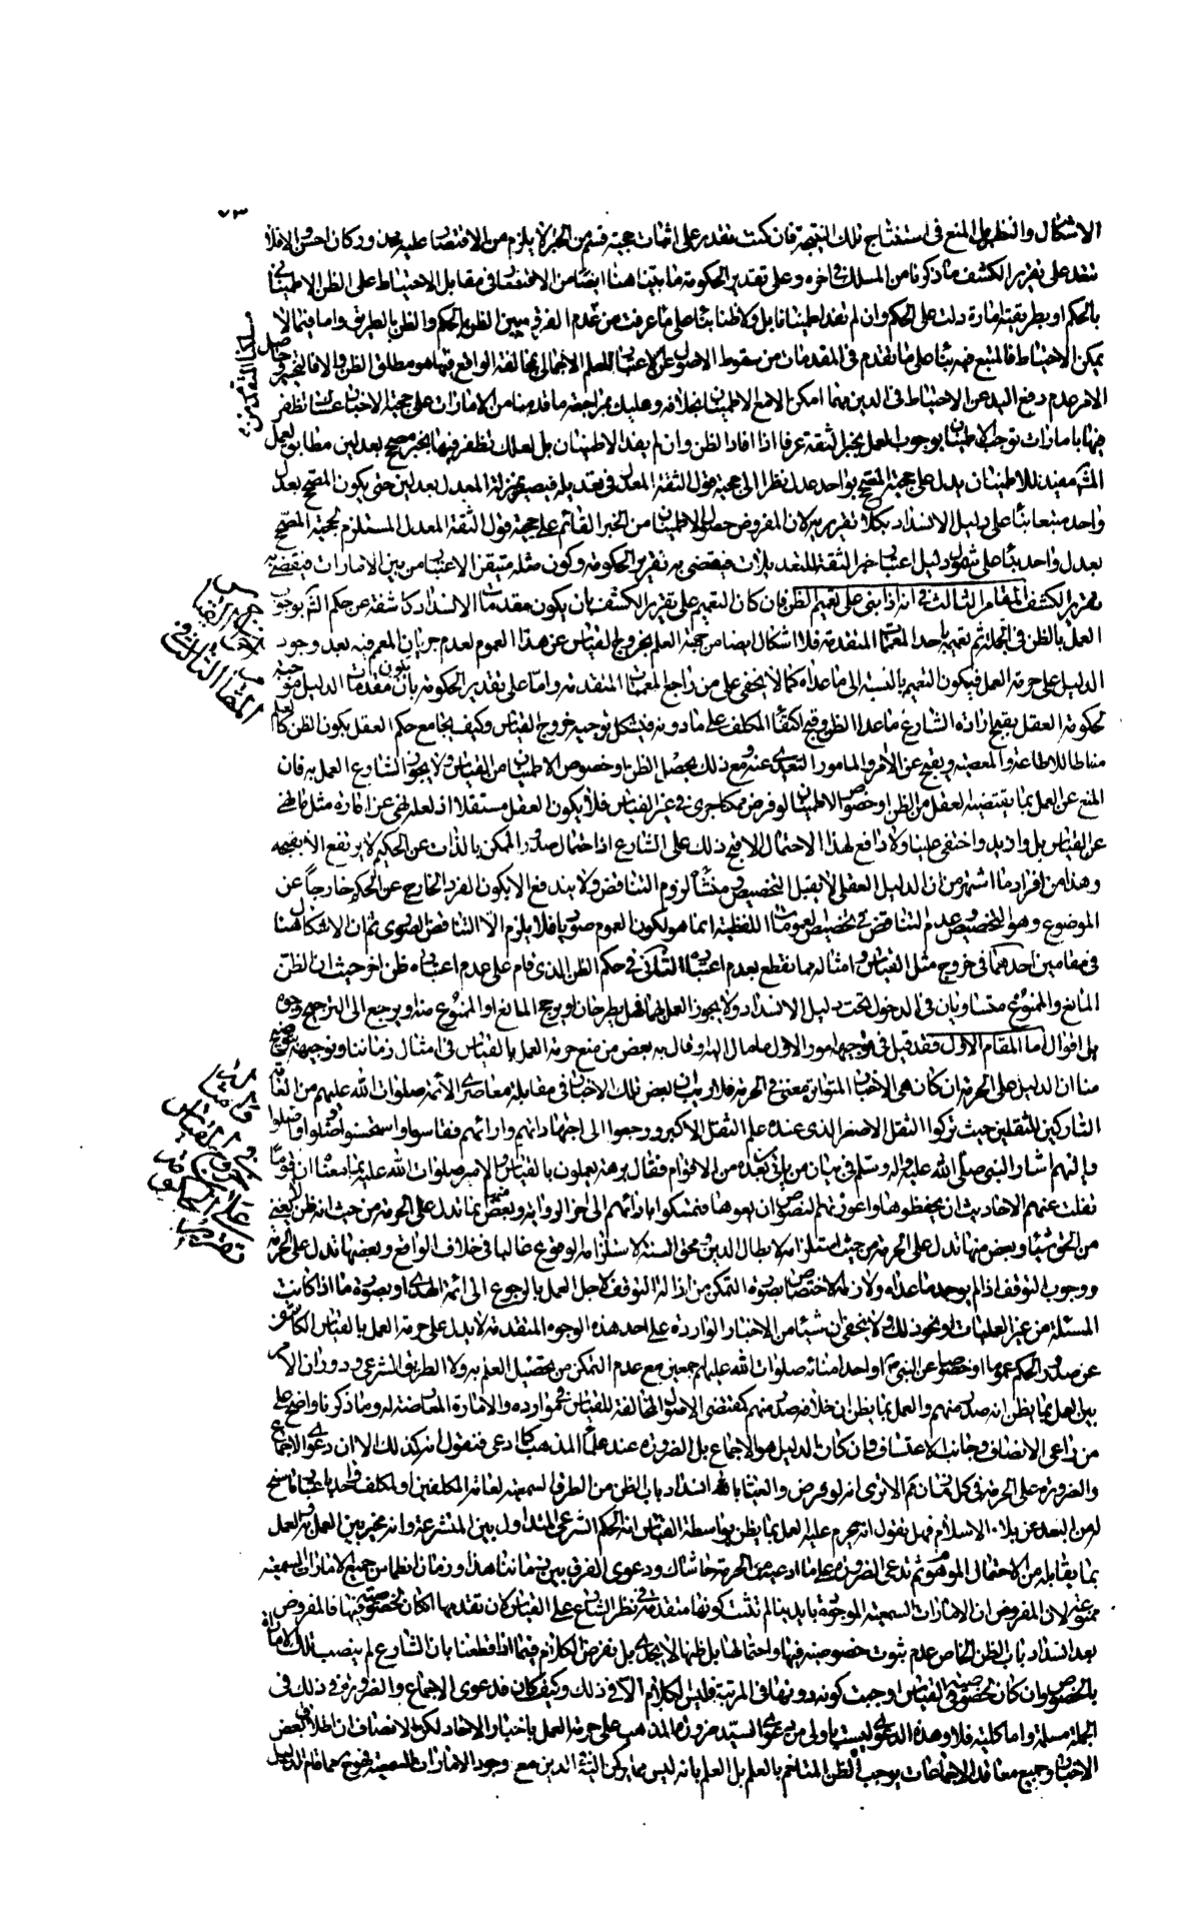 ٧٣
الاشكال والنظر بل المنع فى استنتاج تلك النتيجة فان كنت تقدر على اثبات حجية قسم من الخبر لا يلزم من الاقتصار عليه محذور كان احسن والا فلا
تتعد على تقرير الكشف ما ذكرنا من المسلك فى اخره وعلى تقدير الحكومة ما بيناهنا ايضا من الاقتصار فى مقابل الاحتياط على الظن الاطمينانى
بالحكم او بطريقية امارة دلت على الحكم وان لم تفد اطمينانا بل ولا ظنا بناء على ما عرفت من عدم الفرق بين الظن بالحكم والظن بالطريق واما فيما لا
يمكن الاحتياط فالمتبع فيه بناء على ما تقدم فى المقدمات من سقوط الاصول عن الاعتبار للعلم الاجمالى بمخالفة الواقع فيها هو مطلق الظن والا فالتخيير و
حاصل
الامر عدم رفع اليد عن الاحتياط فى الدين مهما امكن الا مع الاطمينان بخلافه وعليك بمراجعة ما قدمنا من الامارات على حجية الاخبار عساك تظفر
فيها بامارات توجب الاطمينان بوجوب العمل بخبر الثقة عرفا اذا افاد الظن وان لم يفد الاطمينان بل لعلك تظفر فيها بخبر مصحح بعدلين مطابق لعمل
المشهور مفيد للاطمينان يدل على حجية المصحح بواحد عدل نظرا الى حجية قول الثقة المعدل فى تعديله فيصير بمنزلة المعدل بعدلين حتى يكون المصحح بعدل
واحد متبعا بناء على دليل الانسداد بكلا تقريريه لان المفروض حصول الاطمينان من الخبر القائم على حجية قول الثقة المعدل المستلزم لحجية المصحح
بعدل واحد بناء على شمول دليل اعتبار خبر الثقة للتعديلات فيقضى به تقرير الحكومة وكون مثله متيقن الاعتبار من بين الامارات فيقضى به
تقرير الكشف المقام الثالث فى انه اذا بنى على تعميم الظن فان كان التعميم على تقرير الكشف بان يكون مقدمات الانسداد كاشفة عن حكم الشارع بوجوب
العمل بالظن فى الجملة ثم تعميمه باحد المعممات المتقدمة فلا اشكال ايضا من جهة العلم بخروج القياس عن هذا العموم لعدم جريان المعمم فيه بعد وجود
الدليل على حرمة العمل فيكون التعميم بالنسبة الى ما عداه كما لا يخفى على من راجع المعممات المتقدمة واما على تقدير الحكومة بان يكون مقدمات الدليل موجبة
لحكومة العقل بقبح ارادة الشارع ما عدا الظن وقبح اكتفاء المكلف على ما دونه فيشكل توجيه خروج القياس وكيف يجامع حكم العقل بكون الظن كالعلم
مناطا للاطاعة والمعصية ويقبح عن الامر والمامور التعدى عنه ومع ذلك يحصل الظن او خصوص الاطمينان من القياس ولا يجوز الشارع العمل به فان
المنع عن العمل بما يقتضيه العقل من الظن او خصوص الاطمينان لو فرض ممكنا جرى فى غير القياس فلا يكون العقل مستقلا اذ لعله نهى عن امارة مثل ما نهى
عن القياس بل وازيد واختفى علينا ولا دافع لهذا الاحتمال الا قبح ذلك على الشارع اذ احتمال صدور الممكن بالذات عن الحكيم لا يرتفع الا بقبحه
وهذا من افراد ما اشتهر من ان الدليل العقلى لا يقبل التخصيص ومنشأه لزوم التناقض ولا يندفع الا بكون الفرد الخارج عن الحكم خارجا عن
الموضوع وهو التخصص وعدم التناقض فى تخصيص العمومات اللفظية انما هو لكون العموم صوريا فلا يلزم الا التناقض الصورى ثم ان الاشكال هنا
فى مقامين احدهما فى خروج مثل القياس وامثاله مما نقطع بعدم اعتباره الثانى فى حكم الظن الذى قام على عدم اعتباره ظن اخر حيث ان الظن
المانع والممنوع متساويان فى الدخول تحت دليل الانسداد ولا يجوز العمل بهما فهل يطرحان او يرجح المانع او الممنوع منه او يرجع الى الترجيح وجوه
بل اقوال اما المقام الاول فقد قيل فى توجيهه امور الاول ما مال اليه او قال به بعض من منع حرمة العمل بالقياس فى امثال زماننا وتوجيهه بتوضيح
منا ان الدليل على الحرمة ان كان هى الاخبار المتواترة معنى فى الحرمة فلا ريب ان بعض تلك الاخبار فى مقابلة معاصرى الائمة صلوات الله عليهم من العامة
التاركين للثقلين حيث تركوا الثقل الاصغر الذى عنده علم الثقل الاكبر ورجعوا الى اجتهاداتهم وارائهم فقاسوا واستحسنوا وضلوا واضلوا
واليهم اشار النبى صلى الله عليه واله وسلم فى بيان من ياتى بعده من الاقوام فقال برهة يعملون بالقياس والامير صلوات الله عليه بما معناه ان قوما
تفلتت عنهم الاحاديث ان يحفظوها واعوزتهم النصوص ان يعوها فتمسكوا بارائهم الى اخر الرواية وبعض منها تدل على الحرمة من حيث انه ظن لا يغنى
من الحق شيئا وبعض منها تدل على الحرمة من حيث استلزامه لابطال الدين ومحق السنة لاستلزامه الوقوع غالبا فى خلاف الواقع وبعضها تدل على الحرمة
ووجوب التوقف اذا لم يوجد ما عداه ولازمه الاختصاص بصورة التمكن من ازالة التوقف لاجل العمل بالرجوع الى ائمة الهدى او بصورة ما اذا كانت
المسئلة من غير العمليات او نحو ذلك ولا يخفى ان شيئا من الاخبار الواردة على احد هذه الوجوه المتقدمة لا يدل على حرمة العمل بالقياس الكاشف
عن صدور الحكم عموما او خصوصا عن النبى ص او احد امنائه صلوات الله عليهم اجمعين مع عدم التمكن من تحصيل العلم به ولا الطريق الشرعى ودوران الامر
بين العمل بما يظن انه صدر منهم والعمل بما يظن ان خلافه صدر منهم كمقتضى الاصول المخالفة للقياس فى موارده والامارة المعارضة له وما ذكرنا واضح على
من راعى الانصاف وجانب الاعتساف وان كان الدليل هو الاجماع بل الضرورة عند علماء المذهب كما ادعى فنقول انه كذلك الا ان دعوى الاجماع
والضرورة على الحرمة فى كل زمان ثم الا ترى انه لو فرض والعياذ بالله انسداد باب الظن من الطرق السمعية لعامة المكلفين او لمكلف واحد باعتبار ما سنح
له من البعد عن بلاد الاسلام فهل تقول انه يحرم عليه العمل بما يظن بواسطة القياس انه الحكم الشرعى المتداول بين المتشرعة وانه مخير بين العمل به والعمل
بما يقابله من الاحتمال الموهوم ثم تدعى الضرورة على ما ادعيته من الحرمة حاشاك ودعوى الفرق بين زماننا هذا وزمان انطماس جميع الامارات السمعية
ممنوعة لان المفروض ان الامارات السمعية الموجودة بايدينا لم تثبت كونها متقدمة فى نظر الشارع على القياس لان تقدمها ان كان لخصوصية فيها فالمفروض
بعد انسداد باب الظن الخاص عدم ثبوت خصوصية فيها واحتمالها بل ظنها لا يجدى بل نفرض الكلام فيما اذا قطعنا بان الشارع لم ينصب تلك الامارة
بالخصوص وان كان لخصوصية فى القياس اوجبت كونه دونها فى المرتبة فليس الكلام الا فى ذلك وكيف كان فدعوى الاجماع والضرورة فى ذلك فى
الجملة مسلمة واما كلية فلا وهذه الدعوى ليست باولى من دعوى السيد ضرورة المذهب على حرمة العمل باخبار الاحاد لكن الانصاف ان اطلاق بعض
الاخبار وجميع معاقد الاجماعات يوجب الظن المتاخم بالعلم بل العلم بانه ليس مما يركن اليه فى الدين مع وجود الامارات السمعية فهو ح مما قام الدليل
المقام الثالث فى